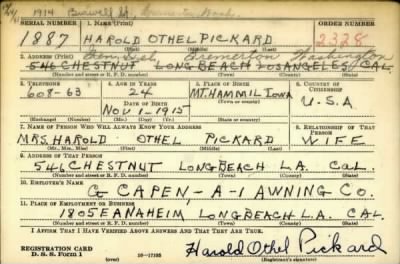 1914 Burwell St. Bremerton, Wash.
SERIAL NUMBER 1. NAME (Print) ORDER NUMBER
1887 HAROLD OTHEL PICKARD 2328
2. ADDRESS (Print) Gen Del Bremerton Washington
546 CHESTNUT LONG BEACH LOS ANGELES, CAL.
(Number and street or R. F. D. number) (Town) (County) (State)
3. TELEPHONE 4. AGE IN YEARS 5. PLACE OF BIRTH 6. COUNTRY OF CITIZENSHIP
608-63 24 MT. HAMMIL IOWA U.S.A
DATE OF BIRTH
NOV 1-1915
(Exchange) (No.) (Mo.) (Day) (Yr.) (Town or county) (State or country)
7. NAME OF PERSON WHO WILL ALWAYS KNOW YOUR ADDRESS 8. RELATIONSHIP OF THAT PERSON
MRS. HAROLD OTHEL PICKARD WIFE
(Mr., Mrs., Miss) (First) (Middle) (Last)
9. ADDRESS OF THAT PERSON
546 CHESTNUT LONG BEACH L.A. CAL.
(Number and street or R. F. D. number) (Town) (County) (State)
10. EMPLOYER'S NAME
CAPEN,-A-1 AWNING CO.
11. PLACE OF EMPLOYMENT OR BUSINESS
1805 E ANAHEIM LONG BEACH L.A. CAL.
(Number and street or R. F. D. number) (Town) (County) (State)
I AFFIRM THAT I HAVE VERIFIED ABOVE ANSWERS AND THAT THEY ARE TRUE.
REGISTRATION CARD
D. S. S. Form 1 16-17105 Harold Othel Pickard
(Registrant's signature)